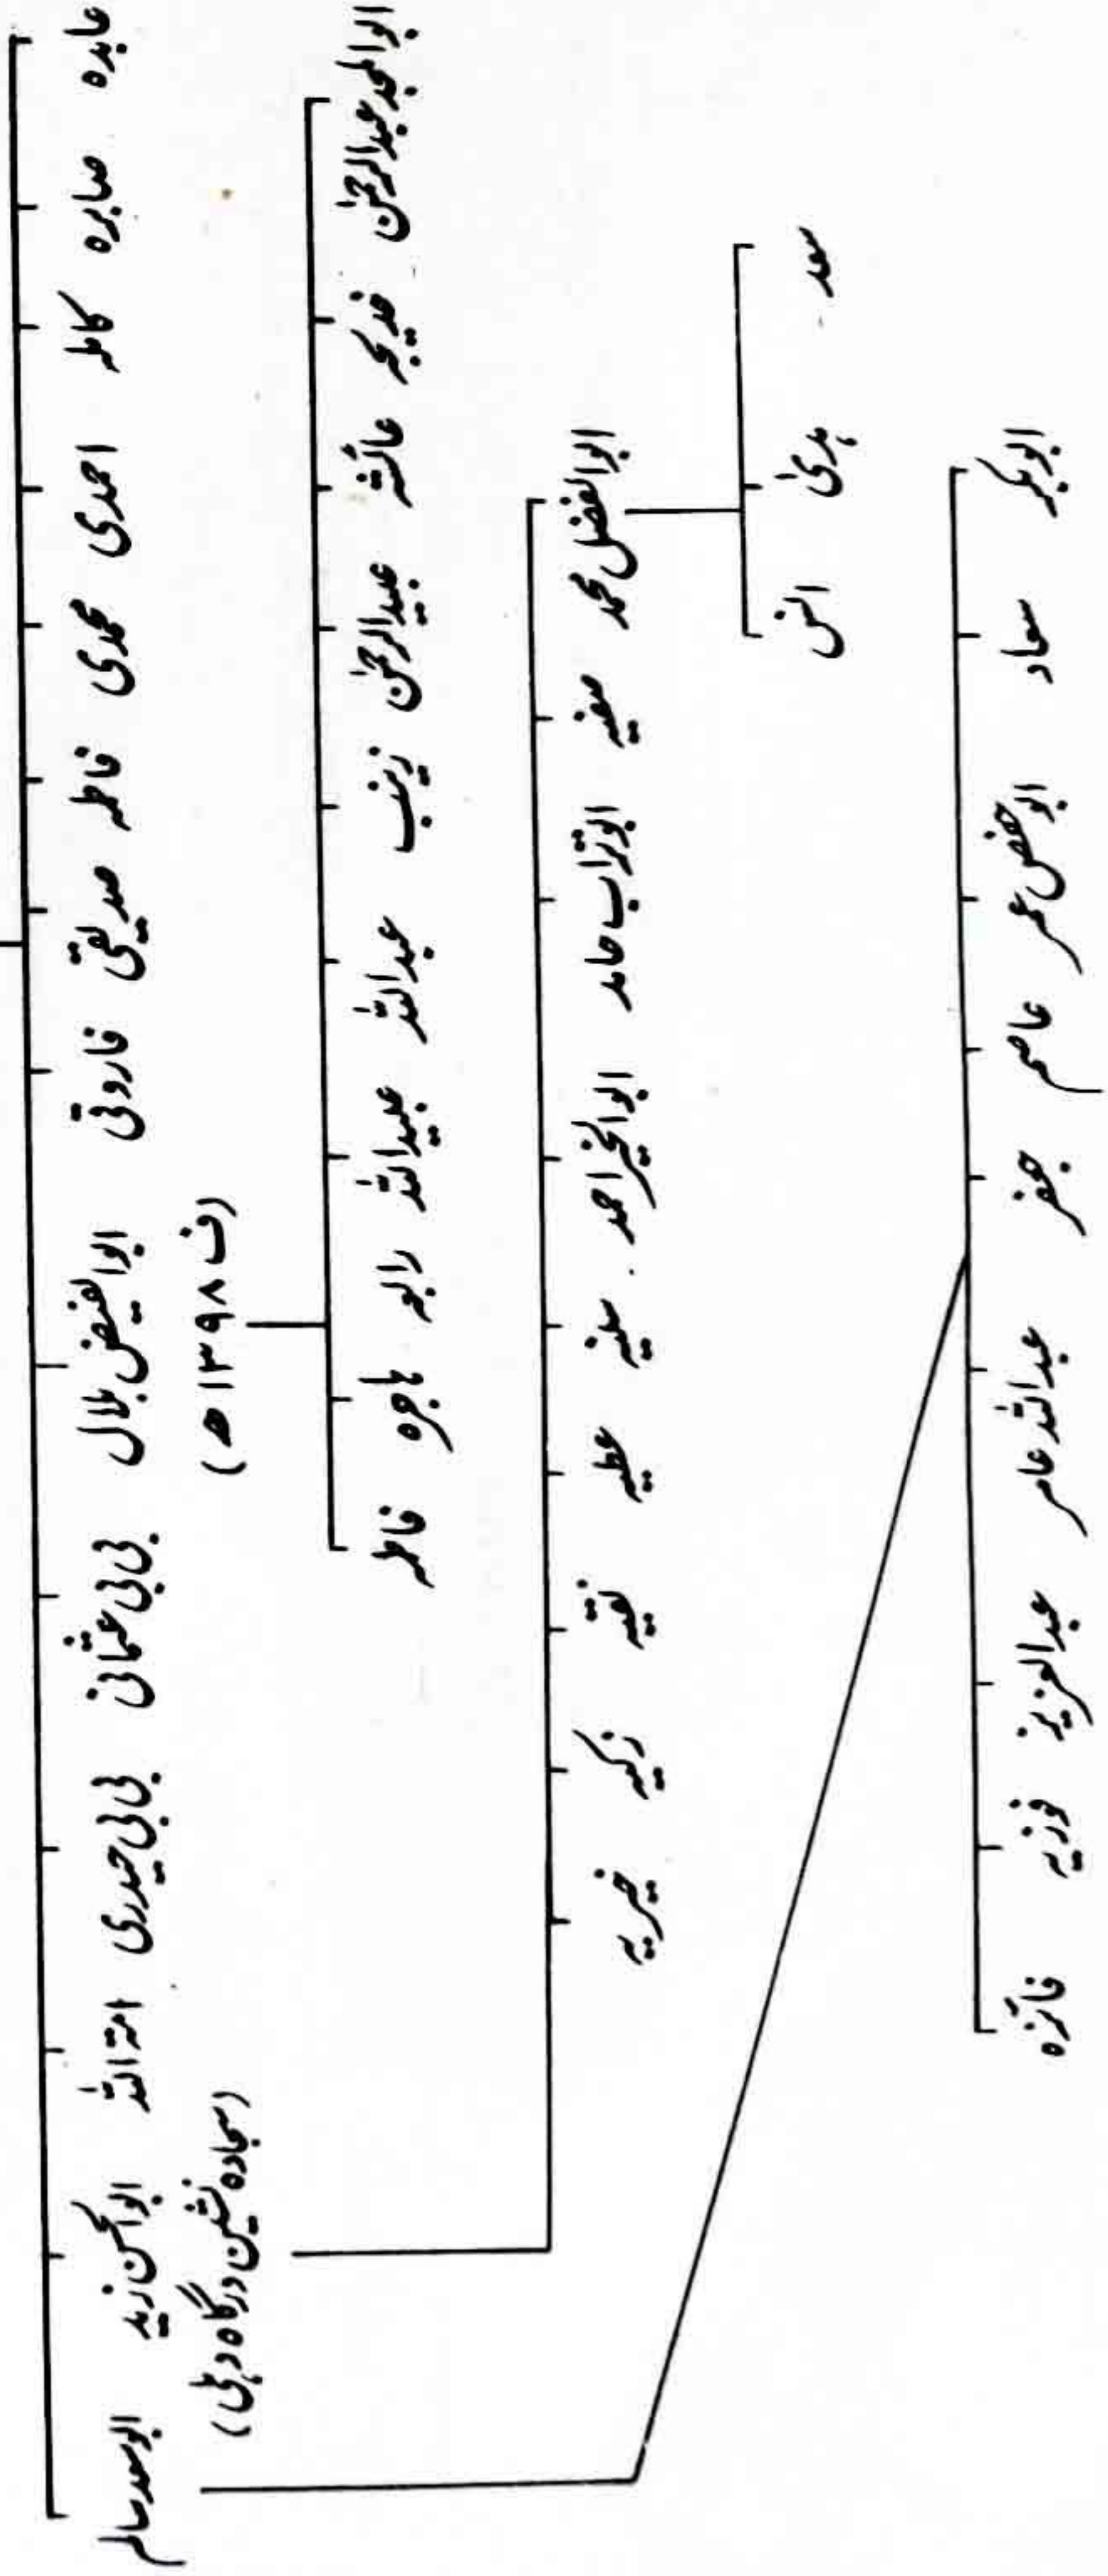 عابدہ صابرہ کاملہ احمدی محمدی فاطمہ صدیقی فاروقی ابوالفیض بلال بی بی عثمانی بی بی حیدری امۃ اللہ ابوالحسن زید ابوسعد سالم
(ف ۱۳۹۸ ھ)
(سجادہ نشین درگاہ دہلی)
ابوالمجد عبدالرحمٰن خدیجہ عائشہ عبیدالرحمٰن زینب عبداللہ عبیداللہ رابعہ ہاجرہ فاطمہ
ابوالفضل محمد صفیہ ابوتراب حامد ابوالخیر احمد سلیمہ عطیہ نقیہ زکیہ خیریہ
سعد ہدیٰ انس
ابوبکر سعاد ابوحفص عمر عاصم جعفر عبداللہ عامر عبدالعزیز فوزیہ فائزہ